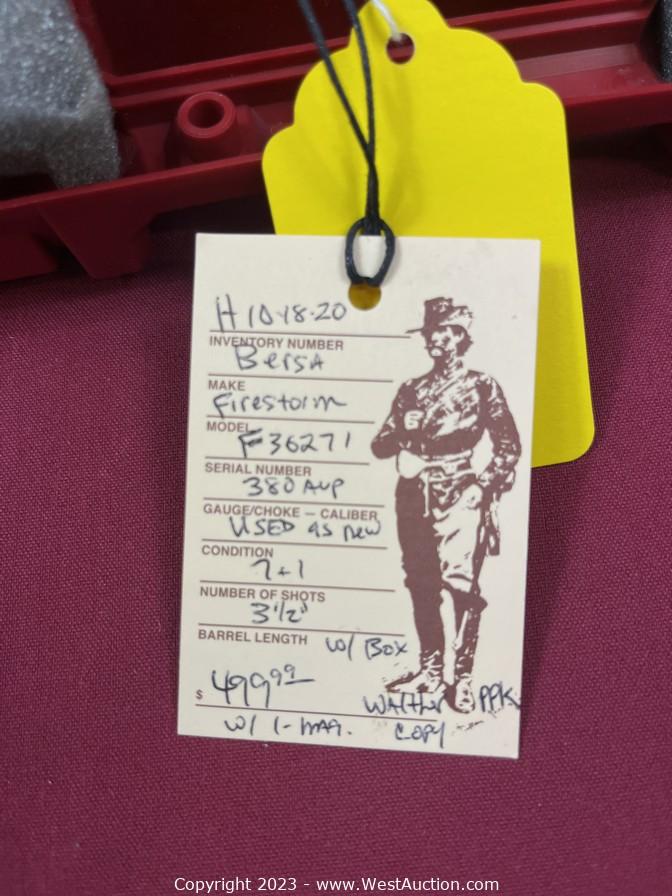 H 10-18-20
INVENTORY NUMBER
Bersa
MAKE
Firestorm
MODEL
F36271
SERIAL NUMBER
380 Aup
GAUGE/CHOKE — CALIBER
USED as new
CONDITION
7+1
NUMBER OF SHOTS
3 1/2"
BARREL LENGTH
w/ Box
$ 499.99
Walther PPK
w/ 1- mag. copy
Copyright 2023 - www.WestAuction.com